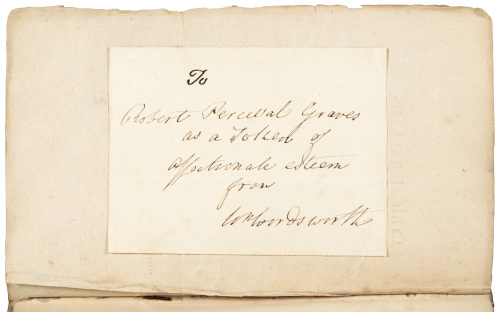 To
Robert Perceval Graves
as a Token of
affectionate esteem
from
Wm Wordsworth